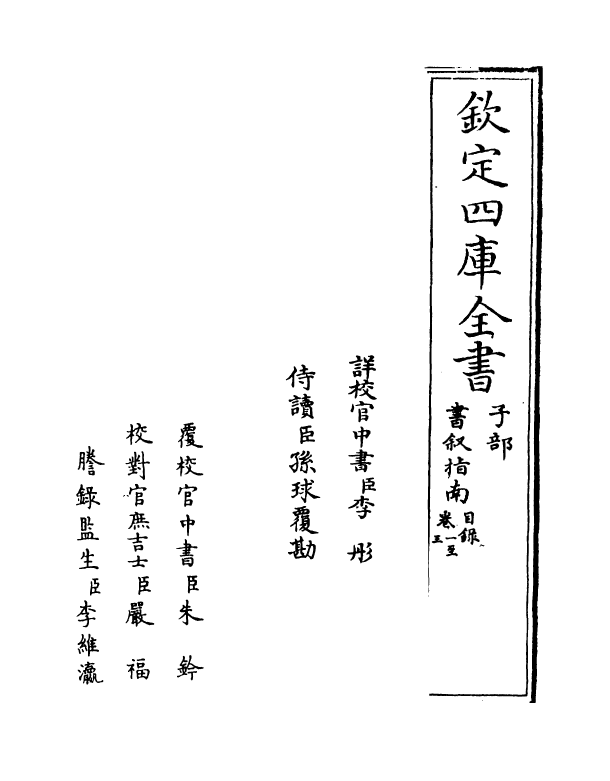 欽定四庫全書
子部
書叙指南
目錄
卷一至
三
詳校官中書臣李彤
侍讀臣孫球覆勘
覆校官中書臣朱鈐
校對官庶吉士臣嚴福
謄錄監生臣李維瀛